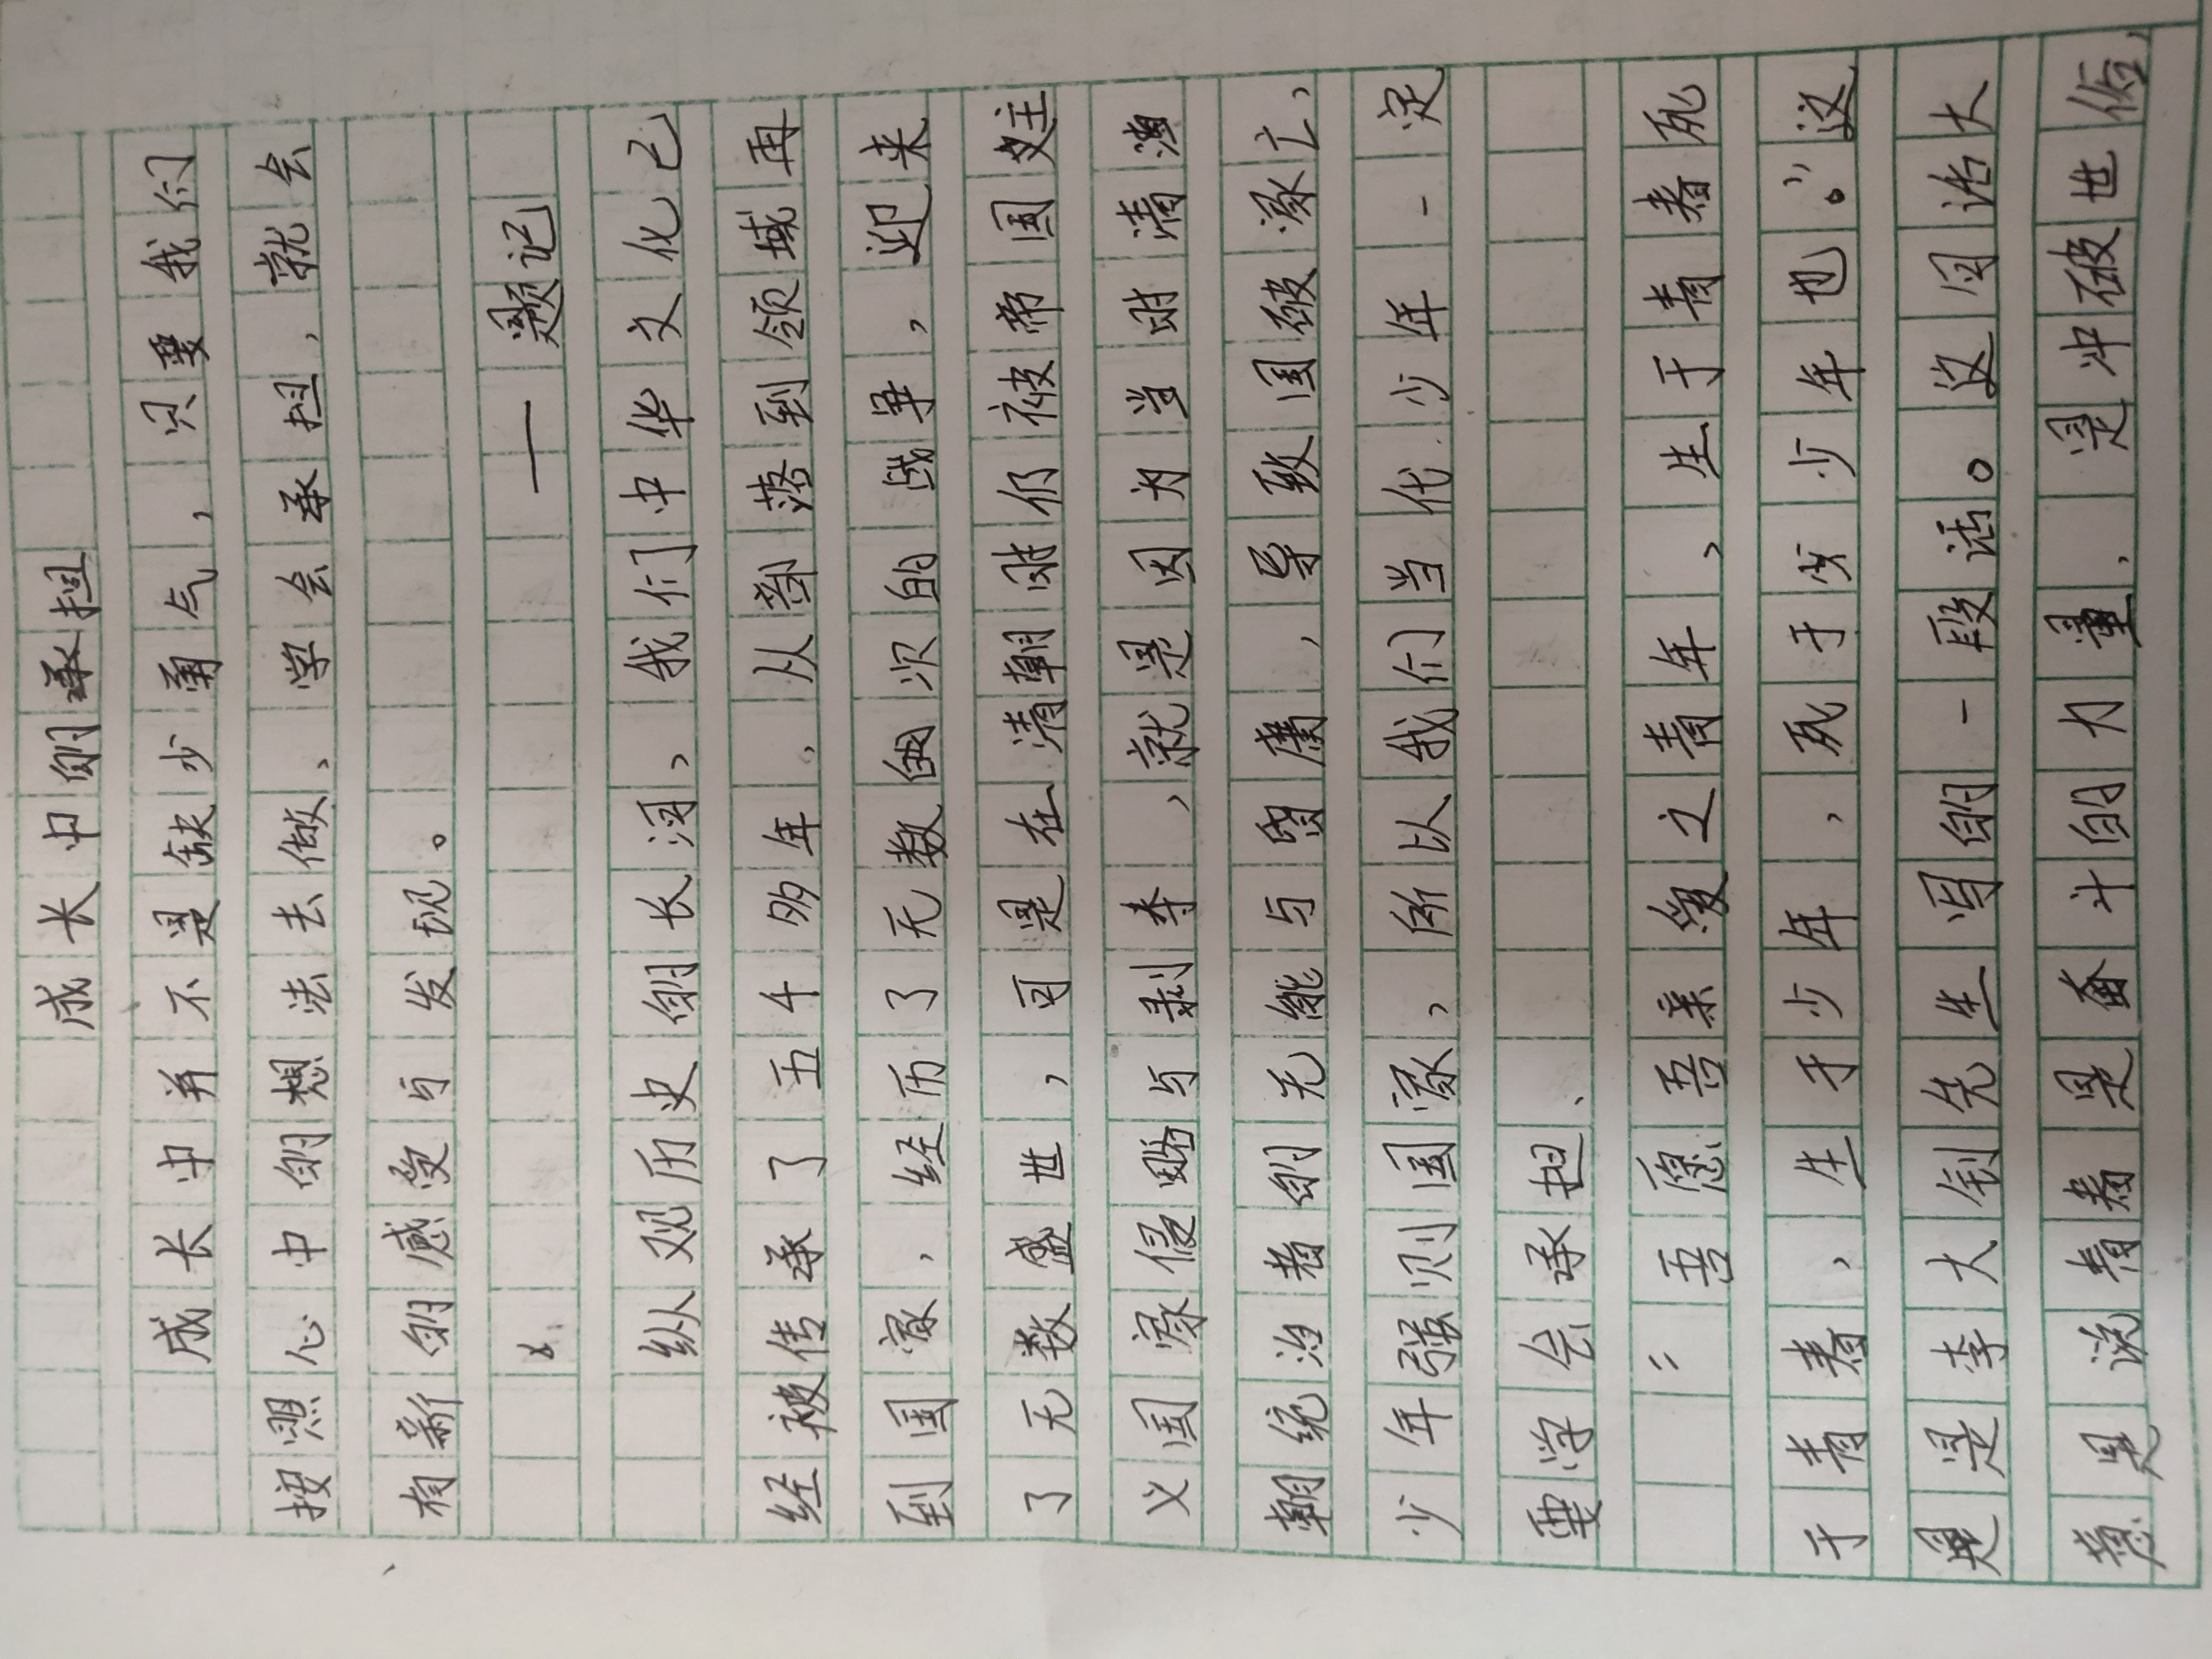 成长中的承担
成长中并不是缺少勇气，只要我们
按照心中的想法去做、学会承担，就会
有新的感受与发现。
——题记
纵观历史的长河，我们中华文化已
经被传承了五千多年，从部落到领域再
到国家，经历了无数的次的战争，迎来
了无数盛世，可是在清朝时仍被帝国主
义国家侵略与剥夺，就是因为当时清
朝统治者的无能与昏庸，导致国破家亡，
少年强则国家，所以我们当代少年一定
要学会承担、
“吾愿吾亲爱之青年，生于青春死
于青春，生于少年，死于少少年也。”这
是李大钊先生写的一段话。这句话大
意是说青春是奋斗的力量，是冲破世俗